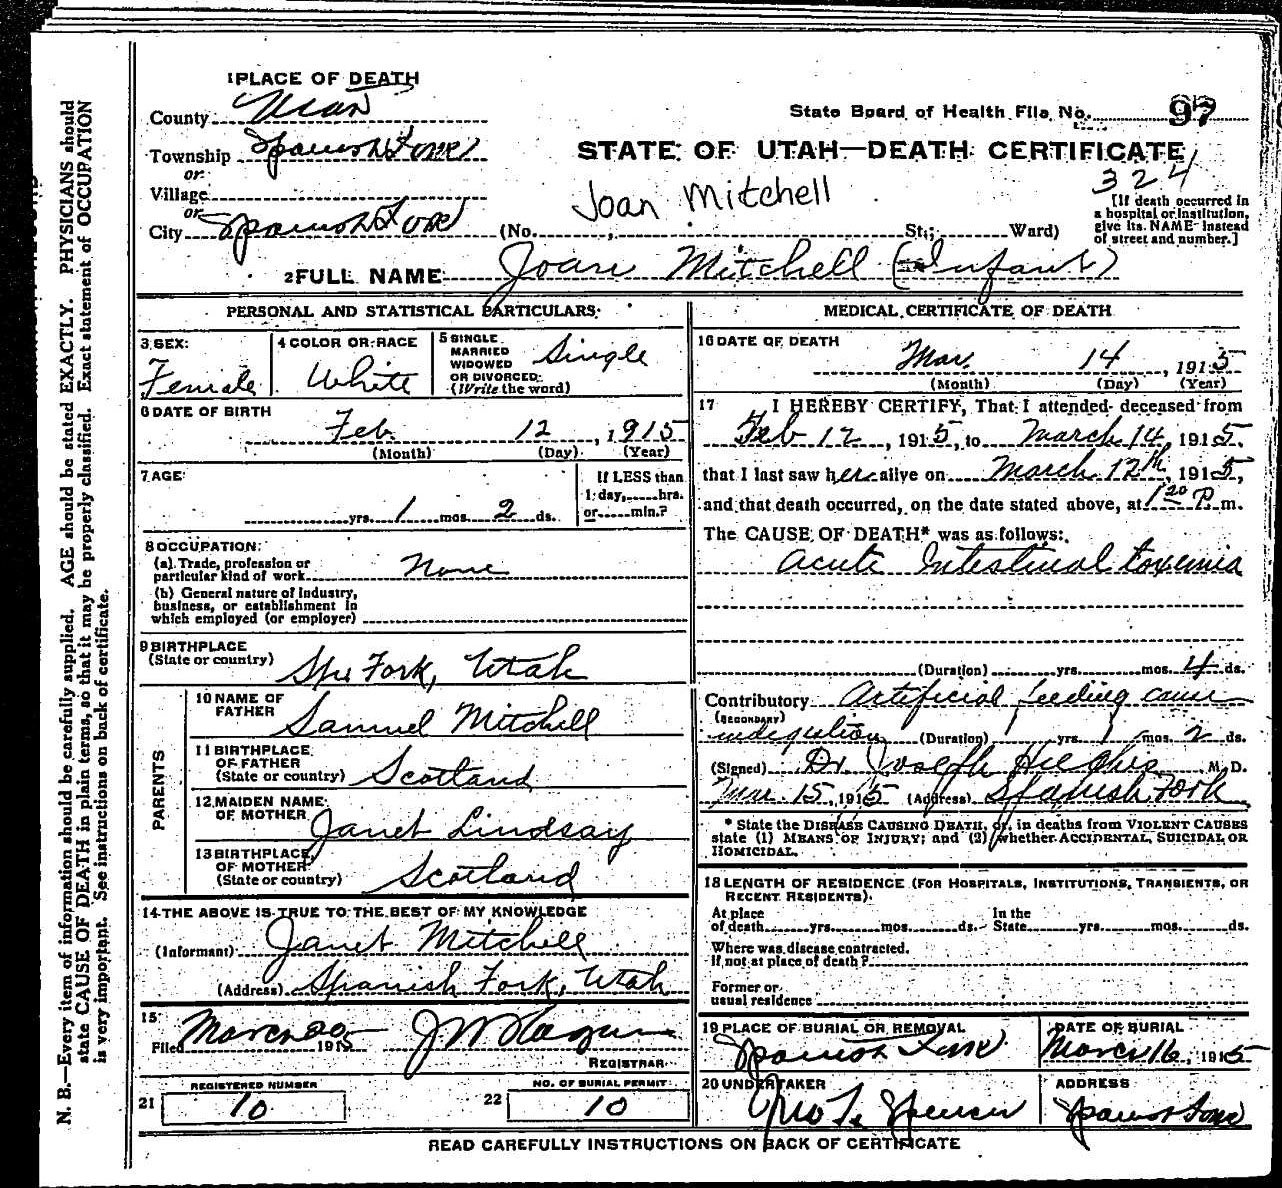 1 PLACE OF DEATH
County Utah
State Board of Health File No. 97
Township Spanish Fork
or
Village
or
City Spanish Fork
STATE OF UTAH—DEATH CERTIFICATE
324
Joan Mitchell
(No. , St.; Ward)
[If death occurred in
a hospital or institution,
give its NAME instead
of street and number.]
2 FULL NAME Joan Mitchell (Infant)
PERSONAL AND STATISTICAL PARTICULARS
3 SEX: Female
4 COLOR OR RACE White
5 SINGLE MARRIED WIDOWED OR DIVORCED (Write the word) Single
6 DATE OF BIRTH
Feb. 12, 1915
(Month) (Day) (Year)
7 AGE
yrs. 1 mos. 2 ds.
If LESS than
1 day, hrs.
or min.?
8 OCCUPATION:
(a) Trade, profession or
particular kind of work None
(b) General nature of industry,
business, or establishment in
which employed (or employer)
9 BIRTHPLACE
(State or country) Spa Fork, Utah
PARENTS
10 NAME OF FATHER Samuel Mitchell
11 BIRTHPLACE OF FATHER (State or country) Scotland
12 MAIDEN NAME OF MOTHER Janet Lindsay
13 BIRTHPLACE OF MOTHER (State or country) Scotland
14 THE ABOVE IS TRUE TO THE BEST OF MY KNOWLEDGE
(Informant) Janet Mitchell
(Address) Spanish Fork, Utah
15
Filed March 20 1915
REGISTRAR
REGISTERED NUMBER
21 10
NO. OF BURIAL PERMIT
22 10
MEDICAL CERTIFICATE OF DEATH
16 DATE OF DEATH
Mar. 14, 1915
(Month) (Day) (Year)
17 I HEREBY CERTIFY, That I attended deceased from
Feb 12, 1915, to March 14, 1915,
that I last saw her alive on March 12th, 1915,
and that death occurred, on the date stated above, at 1 20 P. m.
The CAUSE OF DEATH* was as follows:
Acute Intestinal toxemia
(Duration) yrs. mos. 4 ds.
Contributory Artificial feeding cause
(SECONDARY)
indigestion (Duration) yrs. 1 mos. 2 ds.
(Signed) Dr. Joseph Hughes, M.D.
15, 1915 (Address) Spanish Fork
* State the DISEASE CAUSING DEATH, or, in deaths from VIOLENT CAUSES
state (1) MEANS OF INJURY; and (2) whether ACCIDENTAL, SUICIDAL OR
HOMICIDAL.
18 LENGTH OF RESIDENCE (FOR HOSPITALS, INSTITUTIONS, TRANSIENTS, OR
RECENT RESIDENTS).
At place of death yrs. mos. ds. In the State yrs. mos. ds.
Where was disease contracted.
If not at place of death?
Former or
usual residence
19 PLACE OF BURIAL OR REMOVAL
Spanish Fork
DATE OF BURIAL
March 16, 1915
20 UNDERTAKER
Spencer
ADDRESS
Spanish Fork
READ CAREFULLY INSTRUCTIONS ON BACK OF CERTIFICATE
N. B.—Every item of information should be carefully supplied. AGE should be stated EXACTLY. PHYSICIANS should
state CAUSE OF DEATH in plain terms, so that it may be properly classified. Exact statement of OCCUPATION
is very important. See instructions on back of certificate.